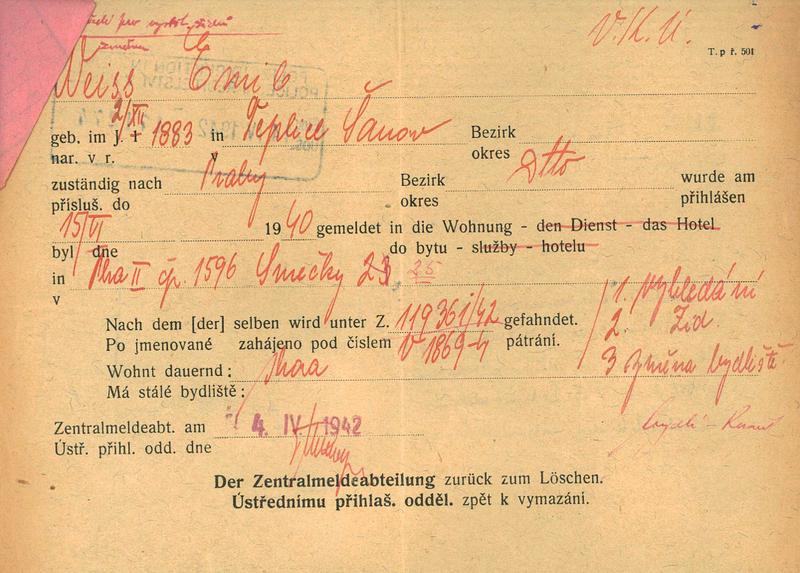 V./K.Ú.
T. p ř. 501
Weiss Emil
geb. im J. 2/XII 1883 in Teplice Šanov Bezirk
nar. v r. v okres Dtto
zuständig nach Prahy Bezirk wurde am
přísluš. do okres přihlášen
15/VI 1940 gemeldet in die Wohnung - den Dienst - das Hotel
byl dne do bytu - služby - hotelu
in Praha II čp. 1596 Smečky 23 25
v
Nach dem [der] selben wird unter Z. 119361/42 gefahndet.
Po jmenované zahájeno pod číslem V 1869-4 pátrání.
1. Vyhledání
2. Žid.
3 změna bydliště.
Wohnt dauernd:
Má stálé bydliště:
Zentralmeldeabt. am 4. IV. 1942
Ústř. přihl. odd. dne
Der Zentralmeldeabteilung zurück zum Löschen.
Ústřednímu přihlaš. odděl. zpět k vymazání.